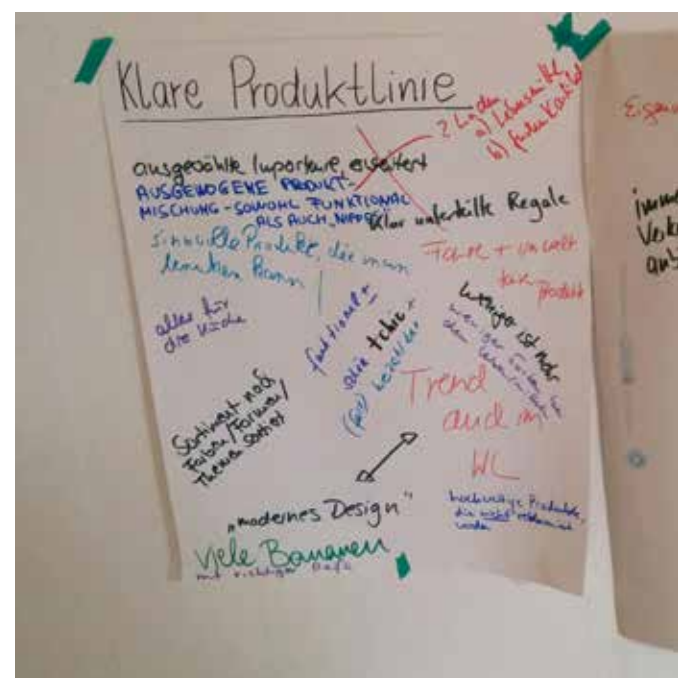 Klare Produktlinie
2 Läden
a)
b)
ausgewählte Importware, erweitert
AUSGEWOGENE PRODUKT-
MISCHUNG - SOWOHL FUNKTIONAL
ALS AUCH
Klar unterteilte Regale
sinnvolle Produkte, die man
kann
Faire + umwelt
Produkt
alles für
die Küche
funktional +
aber schic +
bezahlbar
weniger ist mehr
weniger
Trend
auch im
WL
Sortiment nach
Farben/Formen/
Themen sortiert
„modernes Design"
hochwertige Produkte,
die nicht
werden
Viele Bananen
mit richtiger
Eigen
imme
Verka
anb